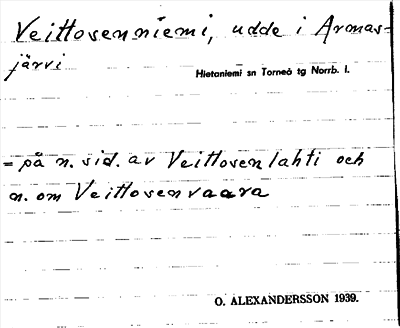 Veittosenniemi, udde i Armas-
järvi
Hietaniemi sn Torneå tg Norrb. l.
= på n. sid. av Veittosenlahti och
n. om Veittosenvaara
O. ALEXANDERSSON 1939.